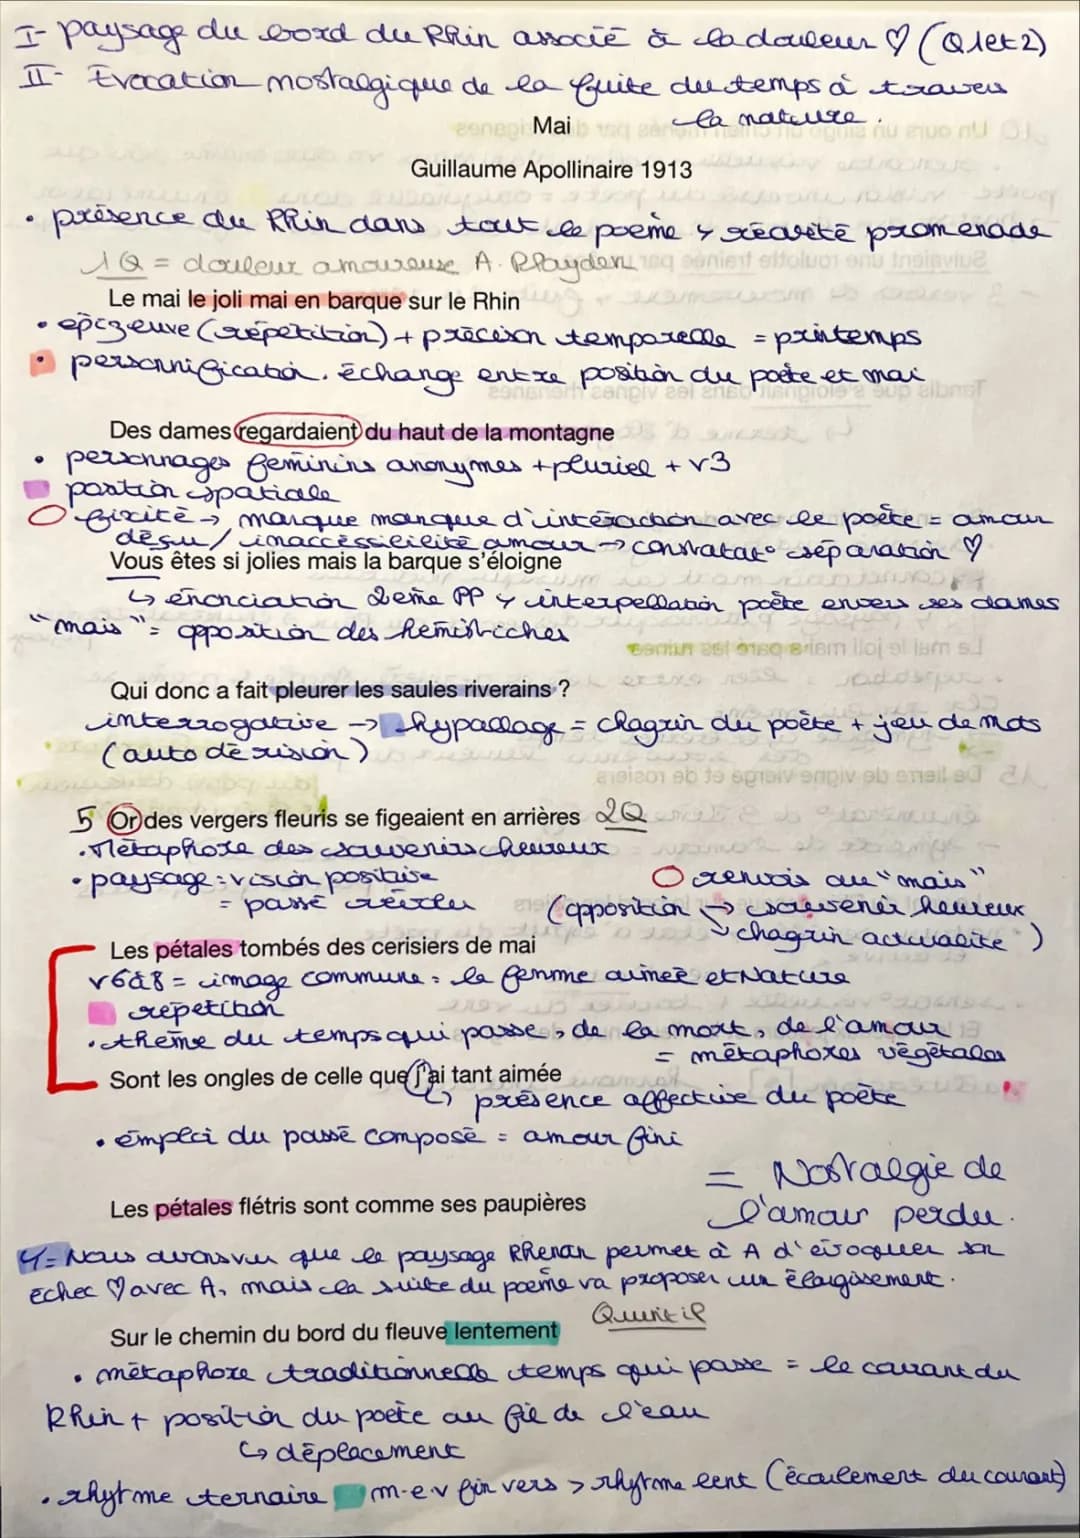 I- paysage du bord du Rhin associé à la douleur ♡ (Q1et2)
II- Évocation nostalgique de la fuite du temps à travers
la nature.
Mai
Guillaume Apollinaire 1913
• présence du Rhin dans tout le poème ↳ récurité promenade
1Q = douleur amoureuse A. Playden
Le mai le joli mai en barque sur le Rhin
• epizeuve (répétition) + précison temporelle = printemps
• personnification. échange entre position du poète et mai
Des dames regardaient du haut de la montagne
• personnages féminins anonymes + pluriel + v3
position spatiale
fixité → marque manque d'intérachon avec le poète = amour
déçu / inaccéssibilité amour → constatat° séparation ♡
Vous êtes si jolies mais la barque s'éloigne
↳ énonciation 2eme PP ↳ interpellation poète envers ses dames
"mais" = opposition des hémistiches
Qui donc a fait pleurer les saules riverains ?
interrogative → hypallage = chagrin du poète + jeu de mots
(auto dérision)
5 Or des vergers fleuris se figeaient en arrières 2Q
. Métaphore des souvenirs heureux
• paysage : vision positive
= passé
renvois au "mais"
(opposition → souvenir heureux
↘ chagrin actualité)
Les pétales tombés des cerisiers de mai
v6à8 = image commune = la femme aimée et Nature
répétition
• thème du temps qui passe, de la mort, de l'amour
= métaphores végétales
Sont les ongles de celle que j'ai tant aimée
↳ présence affective du poète
• emploi du passé composé = amour fini
= Nostalgie de
l'amour perdu.
Les pétales flétris sont comme ses paupières
T= Nous avons vu que le paysage Rhénan permet à A d'évoquer son
échec ♡ avec A, mais la suite du poème va proposer un élargissement.
Quintil
Sur le chemin du bord du fleuve lentement
• métaphore traditionnelle temps qui passe = le courant du
Rhin + position du poète au fil de l'eau
↳ déplacement
• rhytme ternaire m-e-v fin vers > rhytme lent (écoulement du courant)